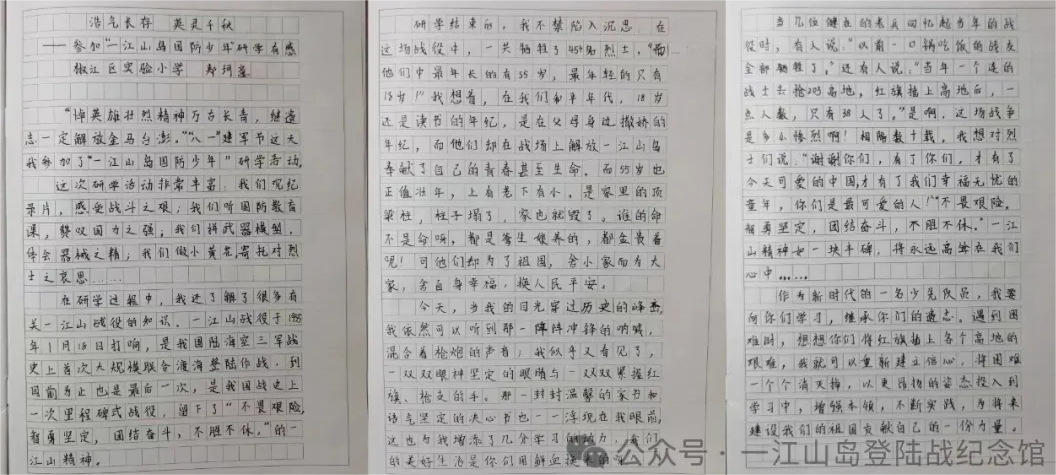 浩气长存 英灵千秋
——参加“一江山岛国防少年”研学有感
椒江区实验小学 郑珂
“悼英雄壮烈精神万古长青，继遗
志一定解放金马台澎。”“八一”建军节这天
我参加了“一江山岛国防少年”研学活动。
这次研学活动非常丰富：我们观纪
录片，感受战斗之艰；我们听国防教育
课，赞叹国力之强；我们拼武器模型，
体会器械之精；我们做小黄花，寄托对烈
士之哀思……
在研学过程中，我还了解了很多有
关一江山战役的知识。一江山战役于1955
年1月18日打响，是我国陆海空三军战
史上首次大规模联合渡海登陆作战，到
目前为止也是最后一次，是我国战史上
一次里程碑式战役，留下了“不畏艰险，
智勇坚定，团结奋斗，不胜不休。”的一
江山精神。
研学结束后，我不禁陷入沉思：在
这场战役中，一共牺牲了454名烈士，“而
他们中最年长的有55岁，最年轻的只有
18岁！”我想着，在我们和平年代，18岁
还是读书的年纪，是在父母身边撒娇的
年纪，而他们却在战场上解放一江山岛
奉献了自己的青春甚至生命。而55岁也
正值壮年，上有老下有小，是家里的顶
梁柱，柱子塌了，家也就毁了。谁的命
不是命呀，都是爹生娘养的，都金贵着
呢！可他们却为了祖国，舍小家而为大
家，舍自身幸福，换人民平安。
今天，当我的目光穿过历史的峰峦，
我依然可以听到那一阵阵冲锋的呐喊，
混合着枪炮的声音；我似乎又看见了，
一双双眼神坚定的眼睛与一双双紧握红
旗、枪支的手。那一封封温馨的家书和
语气坚定的决心书也一一浮现在我眼前，
这也为我增添了几分学习的动力，我们
的美好生活是你们用鲜血换来的
当几位健在的老兵回忆起当年的战
役时，有人说：“以前一口锅吃饭的战友
全部牺牲了。”还有人说：“当年一个连的
战士去抢203高地，红旗插上高地后，一
点人数，只有38人了。”是啊，这场战争
是多么惨烈啊！相隔数十载，我想对烈
士们说：“谢谢你们，有了你们，才有了
今天可爱的中国，才有了我们幸福无忧的
童年，你们是最可爱的人！”“不畏艰险，
智勇坚定，团结奋斗，不胜不休。”一江
山精神如一块丰碑，将永远高耸在我们
心中……
作为新时代的一名少先队员，我要
向你们学习，继承你们的遗志。遇到困
难时，想想你们将红旗插上各个高地的
艰难，我就可以重新建立信心，将困难
一个个消灭掉，以更昂扬的姿态投入到
学习中，增强本领，不断实践，为将来
建设我们的祖国贡献自己的一份力量。
公众号·一江山岛登陆战纪念馆